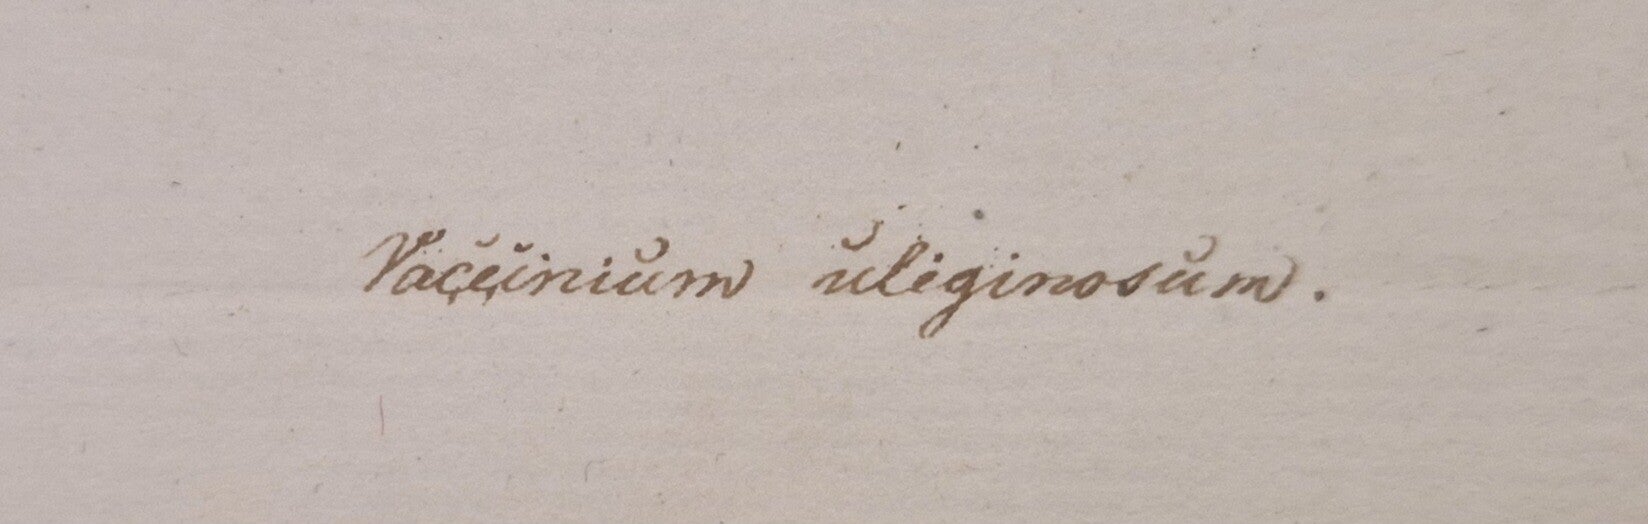 Vaccinium uliginosum.